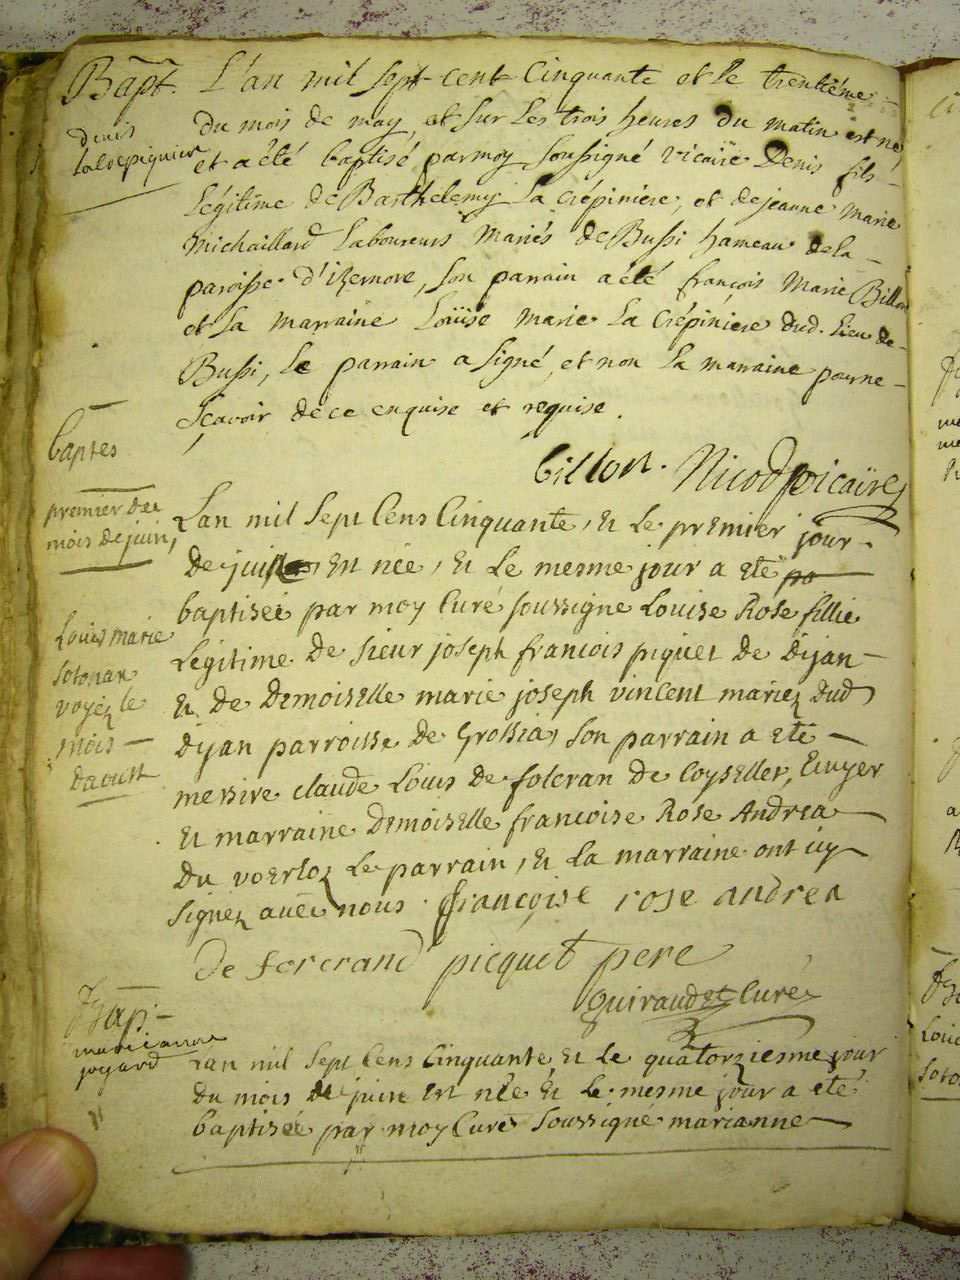 Bapt. L'an mil sept cent cinquante et le trentième
denis
lacrepiniere
du mois de may, et sur les trois heures du matin est né,
et a été baptisé par moy soussigné vicaire Denis fils
légitime de Barthelemy La Crépiniere, et de jeanne Marie
Michaillard Laboureurs Mariés de Bussi hameau de la
paroisse d'izernore, son parrain a été françois Marie Billon
et la marraine Loüise Marie La Crépiniere dud. lieu de
Bussi, Le parrain a signé, et non la marraine pour ne
sçavoir de ce enquise et requise.
billon. Nicod vicaire
baptes
premier de
mois de juin,
Lan mil sept Cens Cinquante, Et Le premier jour
de juin Est née, Et Le mesme jour a Eté
baptiseé par moy Curé soussigne Louise Rose fillie
Legitime de sieur joseph francois piquet de Dijan
Et de Demoiselle marie joseph vincent mariez dud
Dijan parroisse de Grossia, son parrain a eté
messire claude Louis de folcran de Coyseller, Ecuyer
Et marraine Demoiselle francoise Rose Andrea
Du voerloz Le parrain, Et La marraine ont icy
signez avec nous. françoise rose andrea
Louis marie
sotonan
voyez le
mois
daoust
De forcrand picquet pere
guiraudet Curé
Bap.
marieanne
jogard
Lan mil sept Cens Cinquante Et Le quatorziesme jour
du mois de juin Est née Et Le mesme jour a eté
baptiseé par moy Curé soussigne marianne